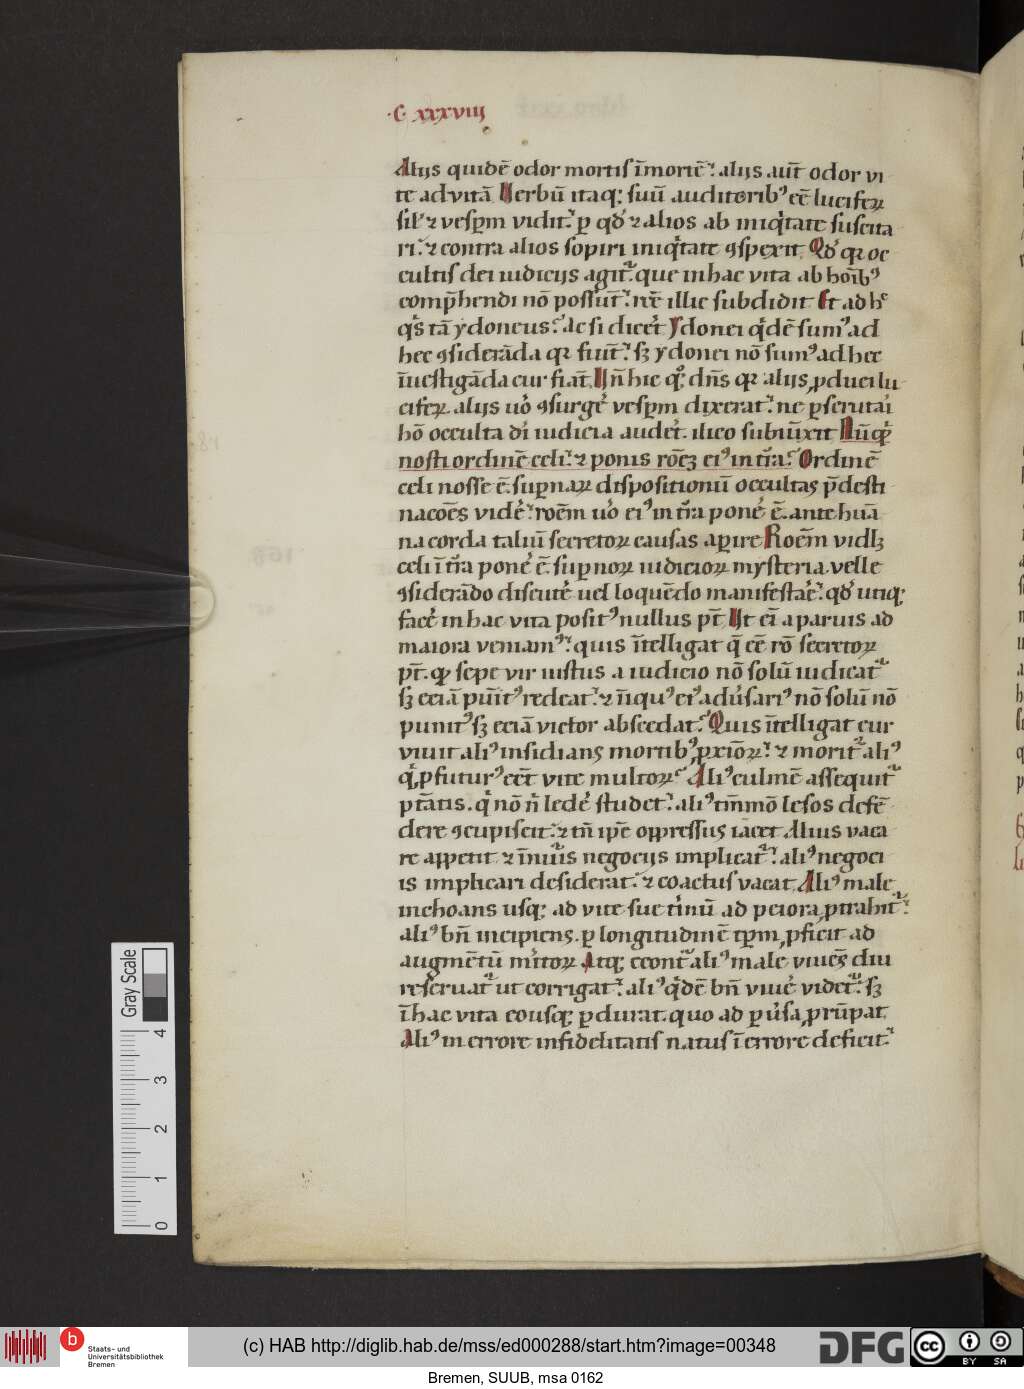 ·C· xxxviij
Alijs quidē odor mortis ī mortē. alijs aut̄ odor vi
te ad vitā Verbū itaq; suū auditorib9 eē lucifeꝝ
sil' ⁊ vesp̱m vidit. ꝑ qđ ⁊ alios ab iniq'tate suscita
ri. ⁊ contra alios sopiri iniq'tate ꝯspexit. Qđ qꝛ oc
cultis dei iudicijs agit'. que in hac vita ab hoīb9
comp̄hendi nō possūt. rcē illic subdidit Et ad hᵉ
q's tā ydoneus. ac si dicēt ydonei q'dē sum9 ad
hec ꝯsiderāda qꝛ fiūt. sꝫ ydonei nō sum9 ad hec
īuestigāda cur fiāt. Vn̄ hic qꝫ dn̄s qꝛ alijs ꝓduci lu
cifeꝝ. alijs uō ꝯsurgē vesp̱m dixerat. ne ꝑscrutai
hō occulta dī iudicia audēt. ilico subiūxit Nūqͥd
nosti ordinē celi. ⁊ ponis rōēꝫ ei9 in t'ra. Ordinē
celi nosse ē. suꝑnaꝝ dispositionū occultas p̄desti
nacōēs vidē. roēm uō ei9 in t'ra ponē ē. ante huā
na corda taliū secretoꝝ causas aꝑire Roēm vidlꝫ
celi ī t'ra ponē ē. suꝑnoꝝ iudicioꝝ mysteria. velle
ꝯsiderādo discutē uel loquēdo manifestāē. qđ utiq;
facē in hac vita posit9 nullus pt̄ Ut ei a paruis ad
maiora veniam9. quis ītelligat q̄ eē rō secretoꝝ
pt̄. qꝫ sepe vir iustus a iudicio nō solū iudicat'
sꝫ eciā pūit9 redeat. ⁊ iniqu9 ei9 adūsari9 nō solū nō
punit9 sꝫ eciā victor abscedat. Quis ītelligat cur
viuit ali9 insidians mortib9 ꝓxīoꝝ. ⁊ morit' ali9
q' ꝓfutur9 eēt vite multoꝝ. Ali9 culmē assequit'
ptātis. q' nō n̄ ledē studet. ali9 tm̄mō lesos defē
dere ꝯcupiscit. ⁊ tn̄ ipē oppressus iacet Alius vaca
re appetit ⁊ īnuīis negocijs implicat'. ali9 negoci
is implicari desiderat. ⁊ coactus vacat. Ali9 male
inchoans usq; ad vite sue t'inū ad peiora ꝓtrahit'.
ali9 bn̄ incipiens. ꝑ longitudinē tꝑm ꝓficit ad
augmētū m'itoꝝ Atq; econt' ali9 male viuēs diu
reseruat' ut corrigat'. ali9 q'dē bn̄ viuē videt'. sꝫ
ī hac vita eousq; ꝑdurat. quo ad ꝑūsa ꝓrūpat
Ali9 in errore infidelitatis natus ī errore deficit.
Gray Scale
0 1 2 3 4
b Staats- und
Universitätsbibliothek
Bremen
(c) HAB http://diglib.hab.de/mss/ed000288/start.htm?image=00348
DFG
cc BY SA
Bremen, SUUB, msa 0162